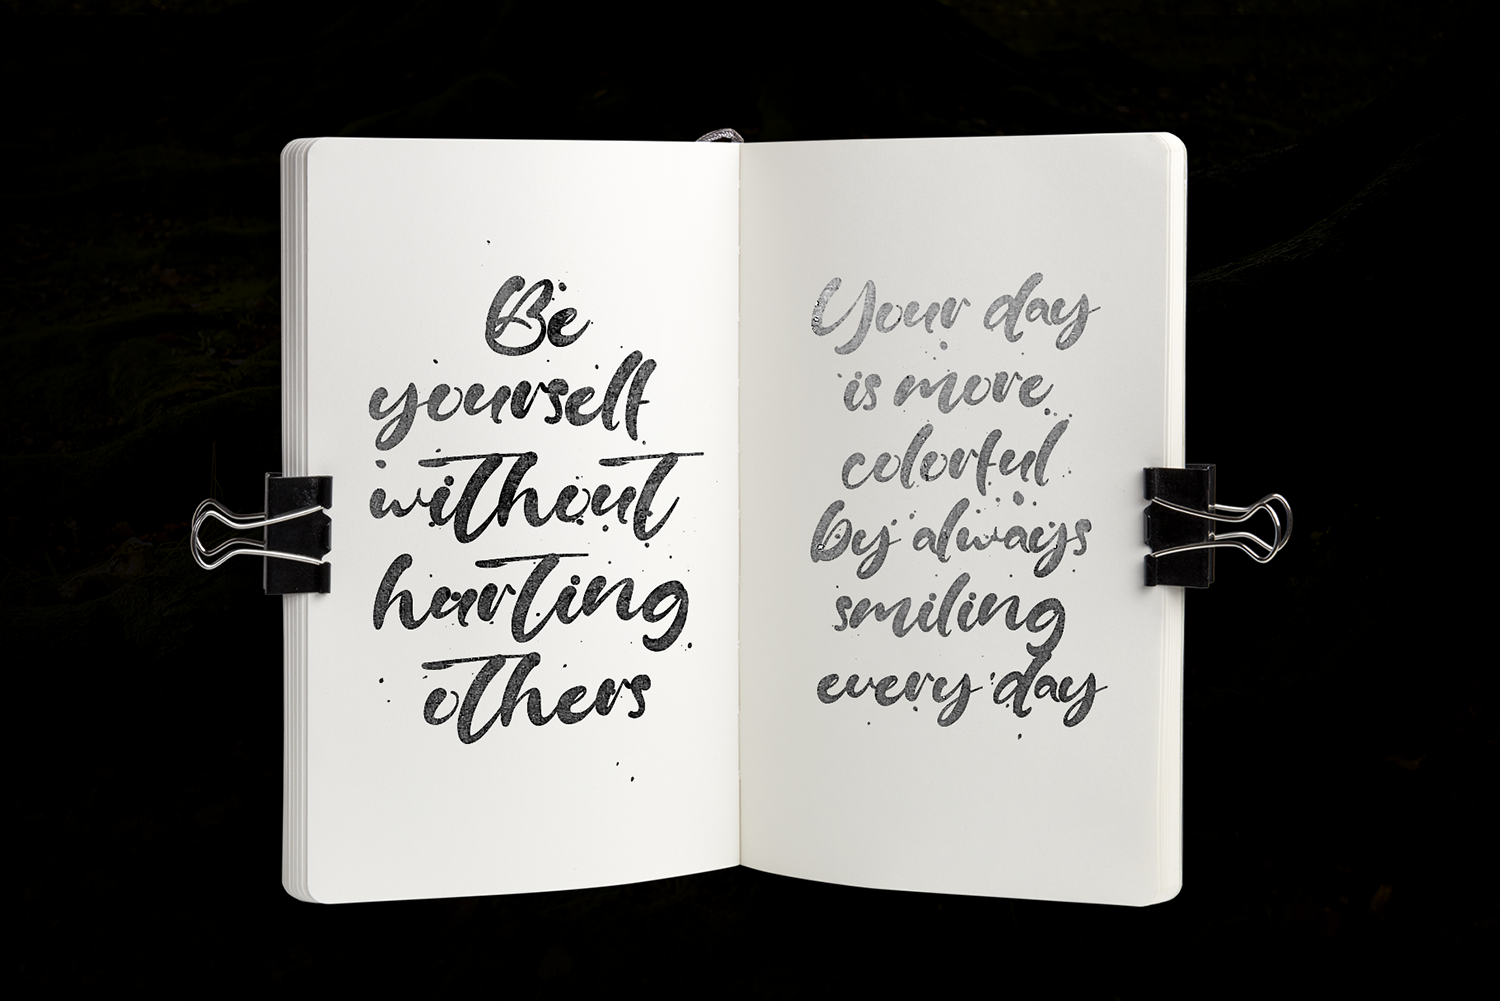 Be
yourself
without
hurting
others
Your day
is more
colorful
by always
smiling
every day